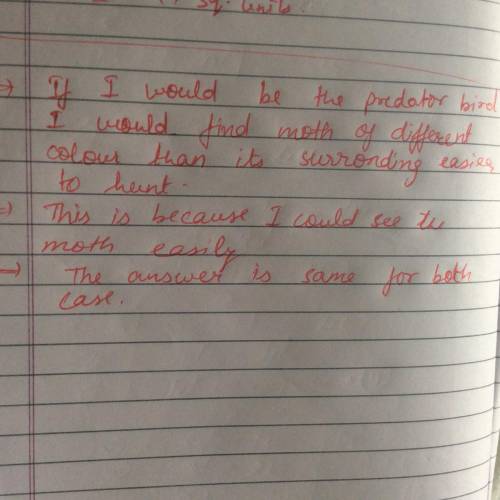 sq. units.
=) If I would be the predator bird
I would find moth of different
colour than its surronding easier
to hunt.
=) This is because I could see the
moth easily
→ The answer is same for both
case.